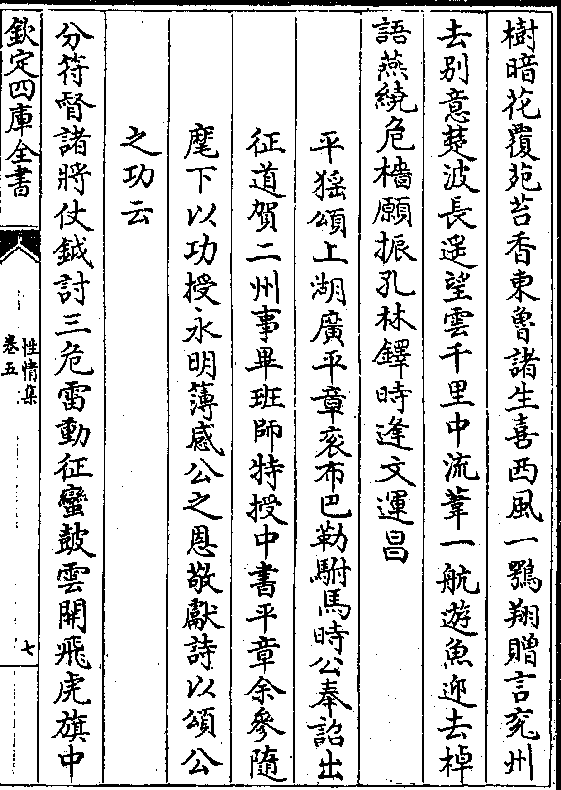 樹暗花覆苑苔香東魯諸生喜西風一鶚翔贈言兖州
去别意楚波長遥望雲千里中流葦一航遊魚迎去棹
語燕繞危檣願振孔林鐸時逢文運昌
平猺頌上湖廣平章衮布巴勒駙馬時公奉詔出
征道賀二州事畢班師特授中書平章余參隨
麾下以功授永明薄感公之恩敬獻詩以頌公
之功云
分符督諸將仗鉞討三危雷動征蠻鼓雲開飛虎旗中
欽定四庫全書
性情集
卷五
七